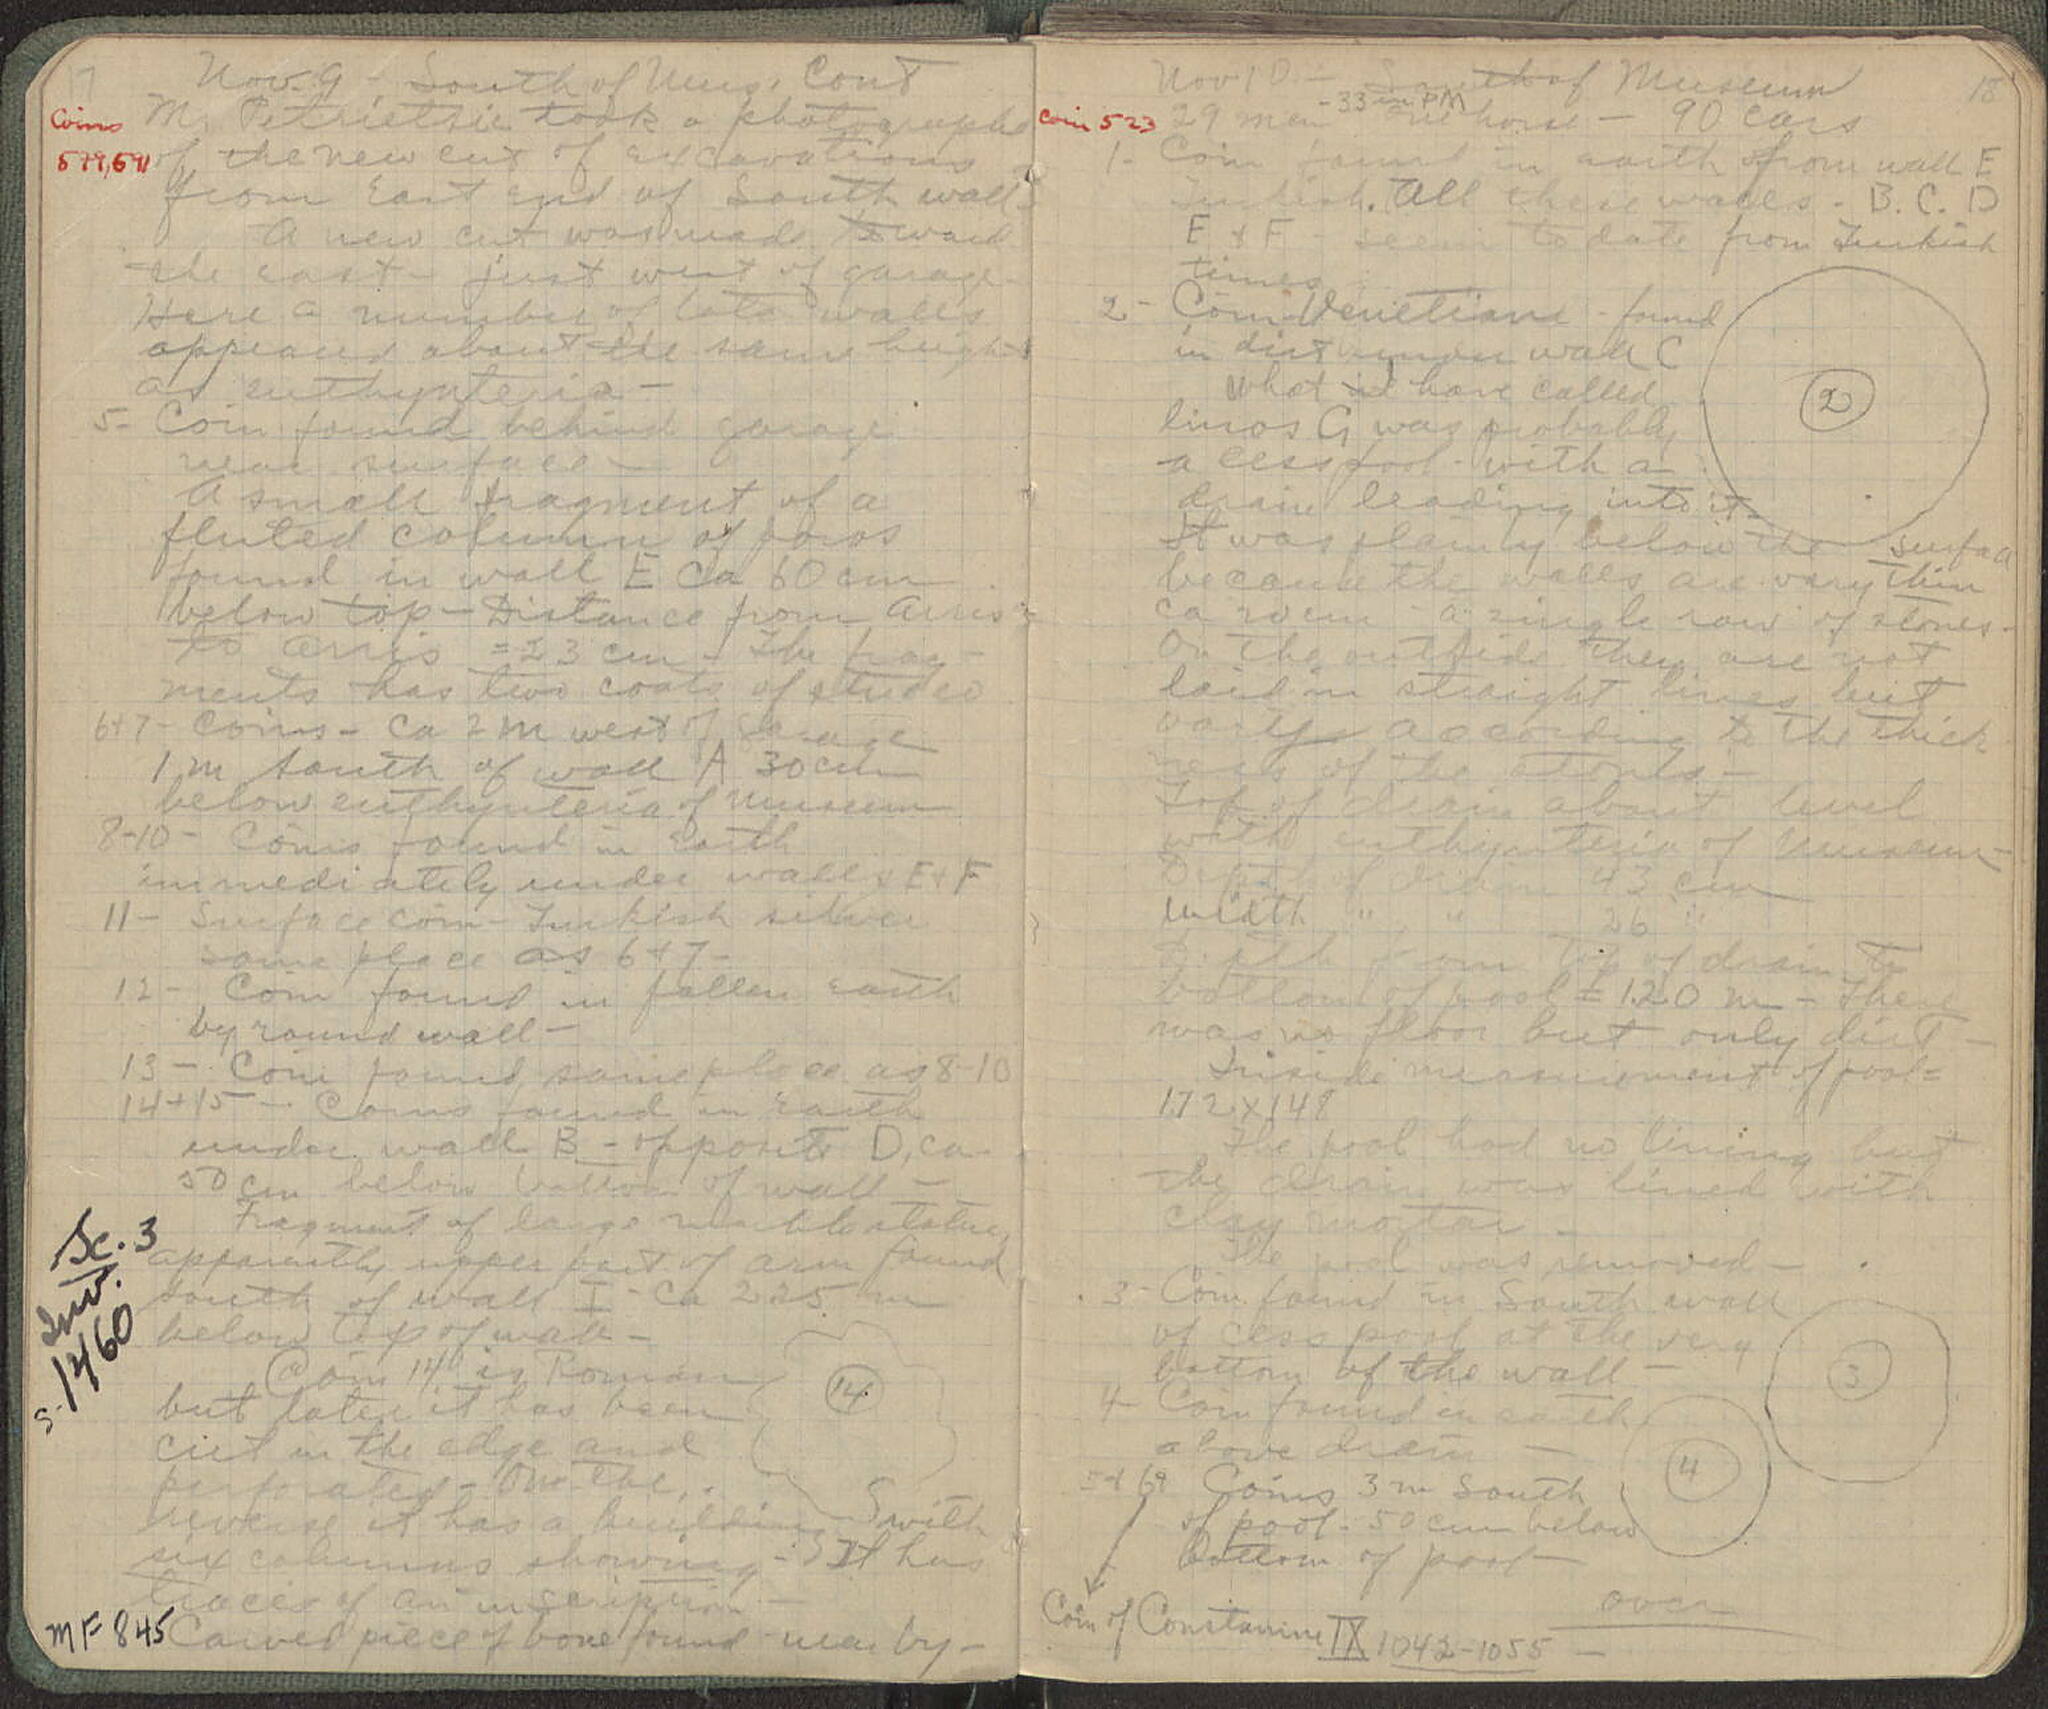 17
Nov. 9 - South of Mus. Cont
Coins
579, 591
Mr. took a photograph
of the new cut of excavations
from East end of South wall
A new cut was made toward
the east - just west of garage -
Here a number of late walls
appeared about the same height
as euthynteria -
5- Coin found behind garage
near surface -
A small fragment of a
fluted column of poros
found in wall E ca 60 cm
below top - Distance from Arris
to arris = 23 cm - The frag-
ments has two coats of stucco
6+7- Coins - Ca 2 m west of Garage
1 m South of wall A 30 cm
below euthynteria of Museum
8-10- Coins found in Earth
immediately under walls E+F
11- Surface coin - Turkish silver
same place as 6+7-
12- Coin found in fallen earth
by round wall -
13- Coin found same place as 8-10
14+15- Coins found in Earth
under wall B - opposite D, ca.
50 cm below bottom of wall -
Fragment of large marble statue,
apparently upper part of arm found
South of wall I - Ca 2.25 m
below top of wall -
Sc. 3
Inv.
S-1460
Coin 14 is Roman
but later it has been
cut in the edge and
perforated - On the
reverse it has a building with
six columns showing - It has
traces of an inscription -
14
MF 845 Carved piece of bone found near by -
18
Nov 10 - South of Museum
coin 523
29 men -33 in PM one horse - 90 cars
1- Coin found in earth from wall E
Turkish. All these walls - B. C. D
E & F - seem to date from Turkish
times
2- Coin Venetian - found
in dirt under wall C
What we have called
linos G was probably
a cesspool - with a
drain leading into it -
It was plainly below the surface
because the walls are very thin
ca 20 cm - a single row of stones -
On the outside they are not
laid in straight lines but
varys according to the thick
ness of the stones -
Top of drain about level
with euthynteria of Museum -
Depth of drain 43 cm
width " " 26 "
Depth from top of drain to
bottom of pool = 1.20 m - There
was no floor but only dirt -
Inside measurement of pool =
1.72 x 149
The pool had no lining but
the drain was lined with
clay mortar -
The pool was removed -
3- Coin found in South wall
of cess pool at the very
bottom of the wall -
4- Coin found in earth
above drain -
5+6 Coins 3 m South
of pool - 50 cm below
bottom of pool -
2
3
4
over
Coin of Constanine IX 1042-1055 -